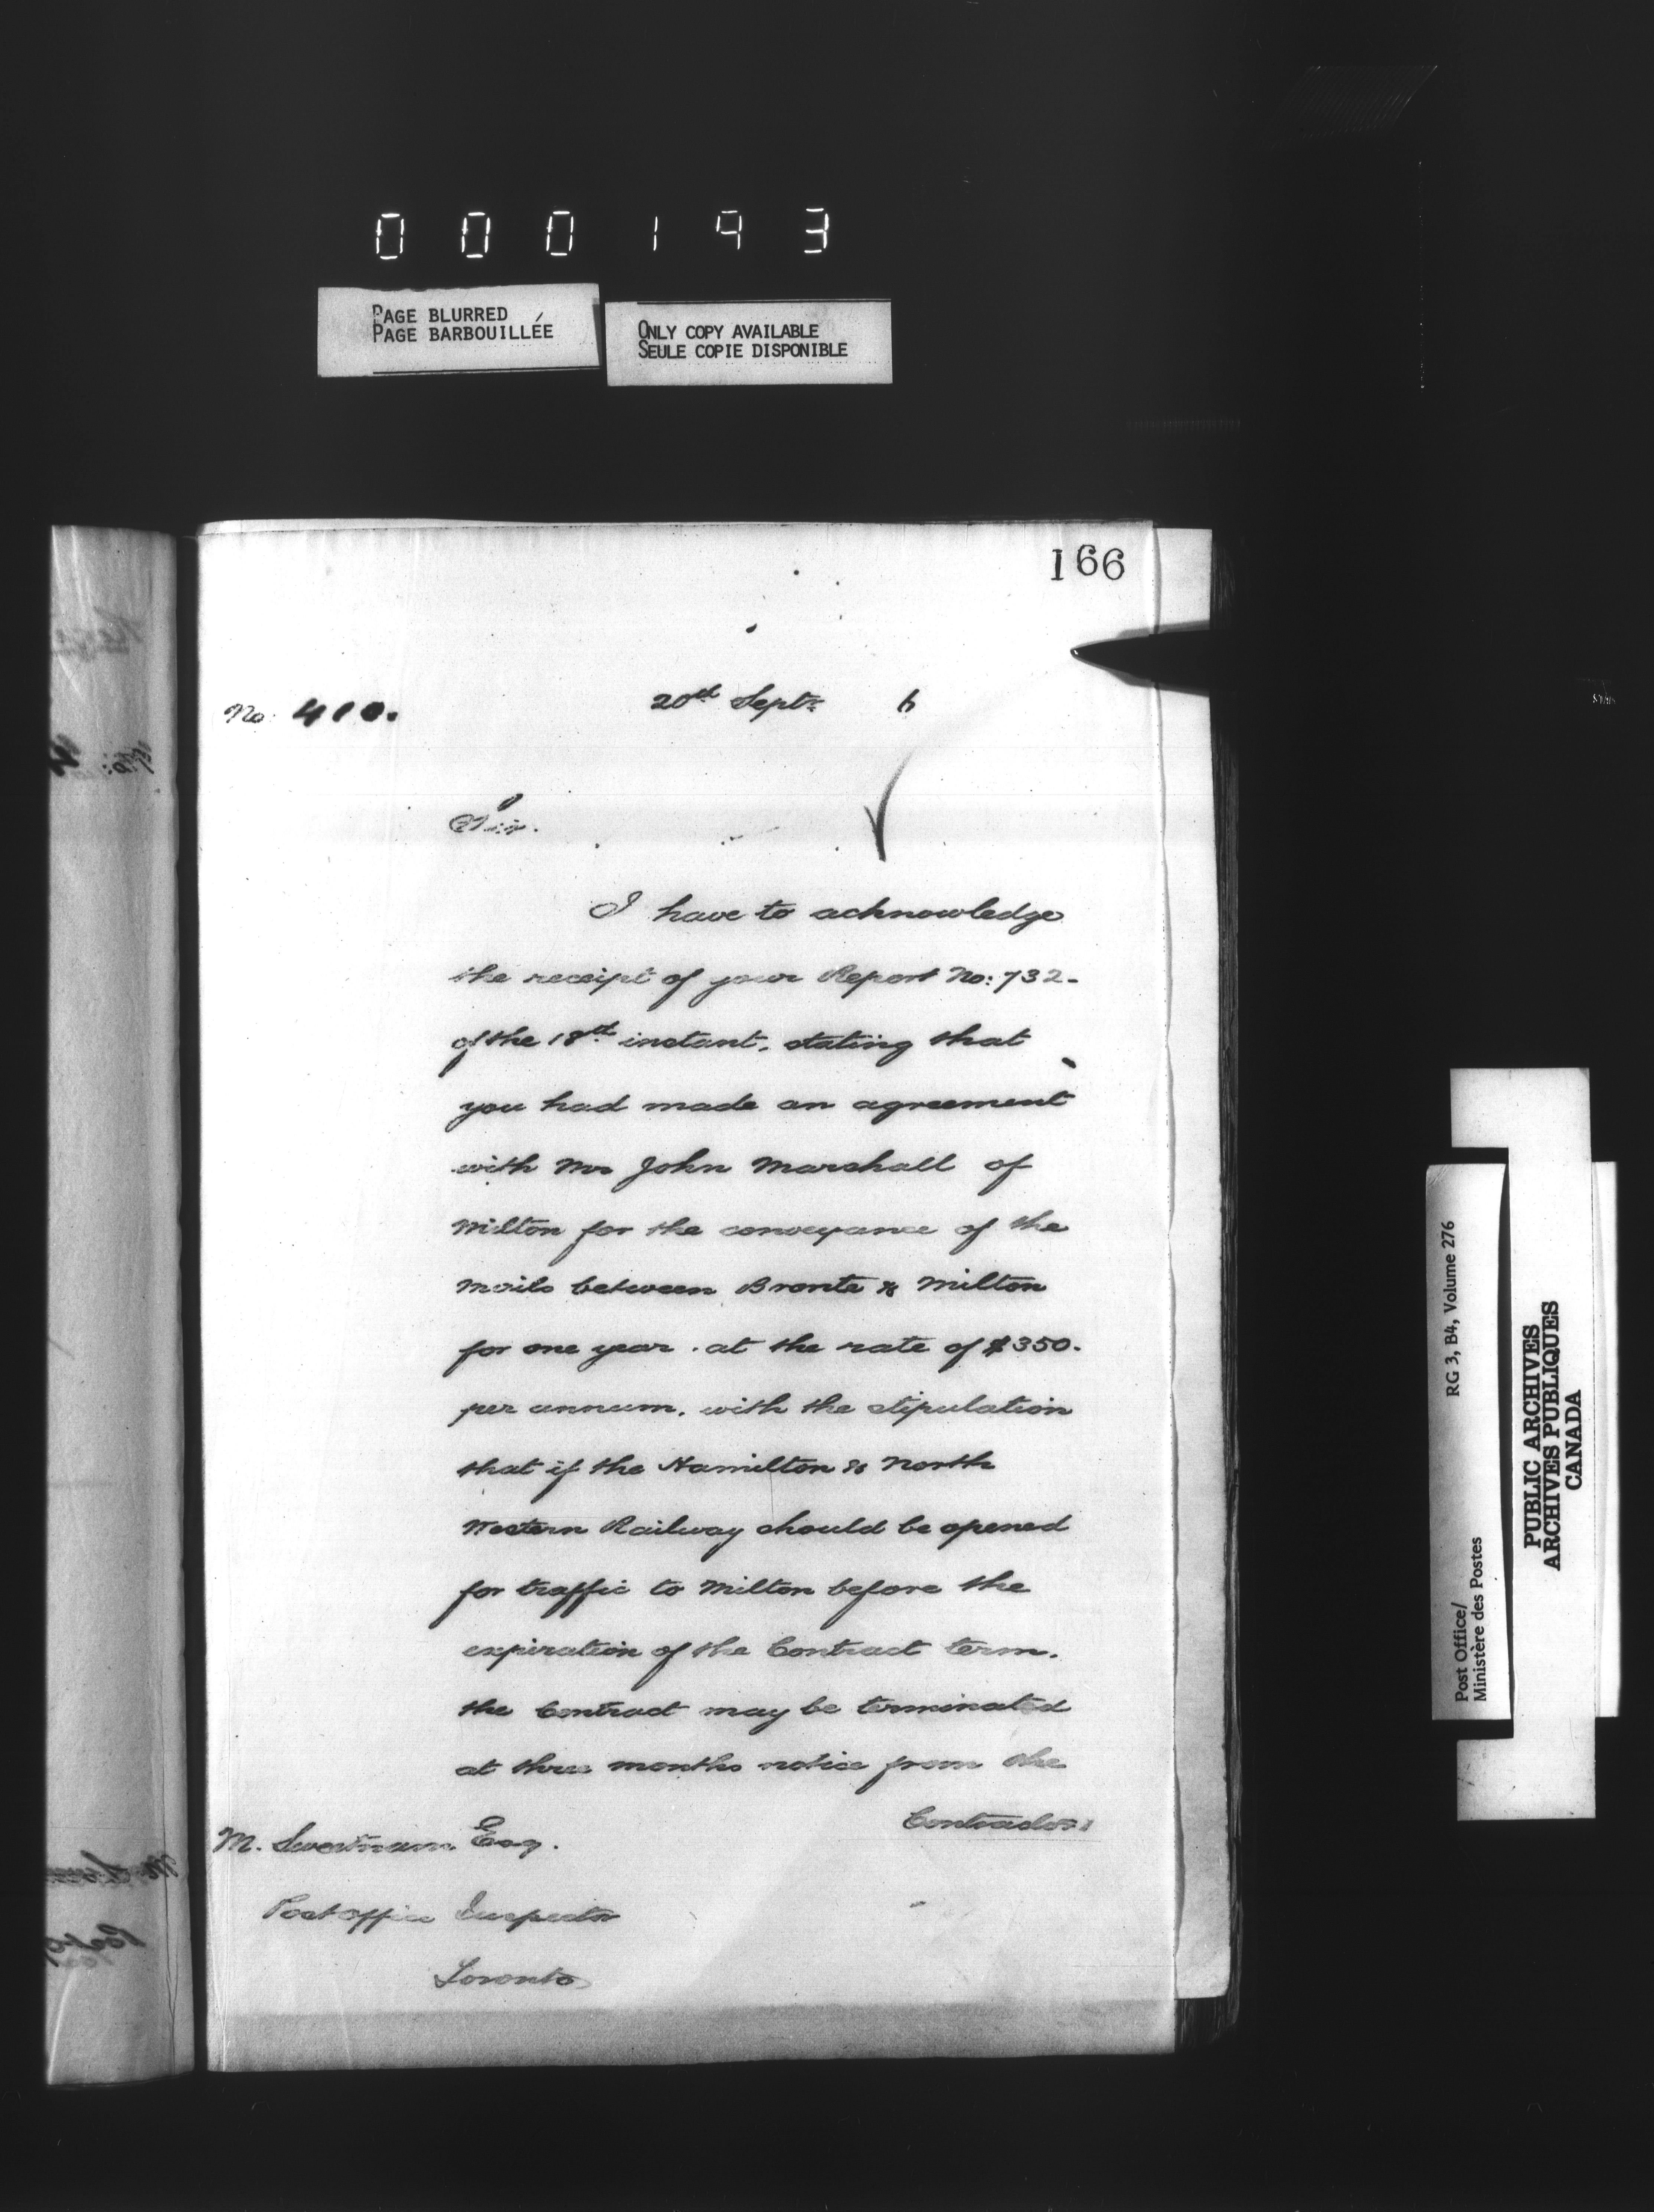 000193
PAGE BLURRED
PAGE BARBOUILLÉE
ONLY COPY AVAILABLE
SEULE COPIE DISPONIBLE
166
No: 410.
20th Septr. 6
Sir.
I have to acknowledge
the receipt of your Report No: 732-
of the 18th instant, stating that
you had made an agreement
with Mr John Marshall of
Milton for the conveyance of the
Mails between Bronte & Milton
for one year. at the rate of $350.
per annum, with the stipulation
that if the Hamilton & North
Western Railway should be opened
for traffic to Milton before the
expiration of the Contract term.
the Contract may be terminated
at three months notice from the
Contractor:
M. Sweetnam Esq.
Post Office Inspector
Toronto
Post Office/
Ministère des Postes
RG 3, B4, Volume 276
PUBLIC ARCHIVES
ARCHIVES PUBLIQUES
CANADA